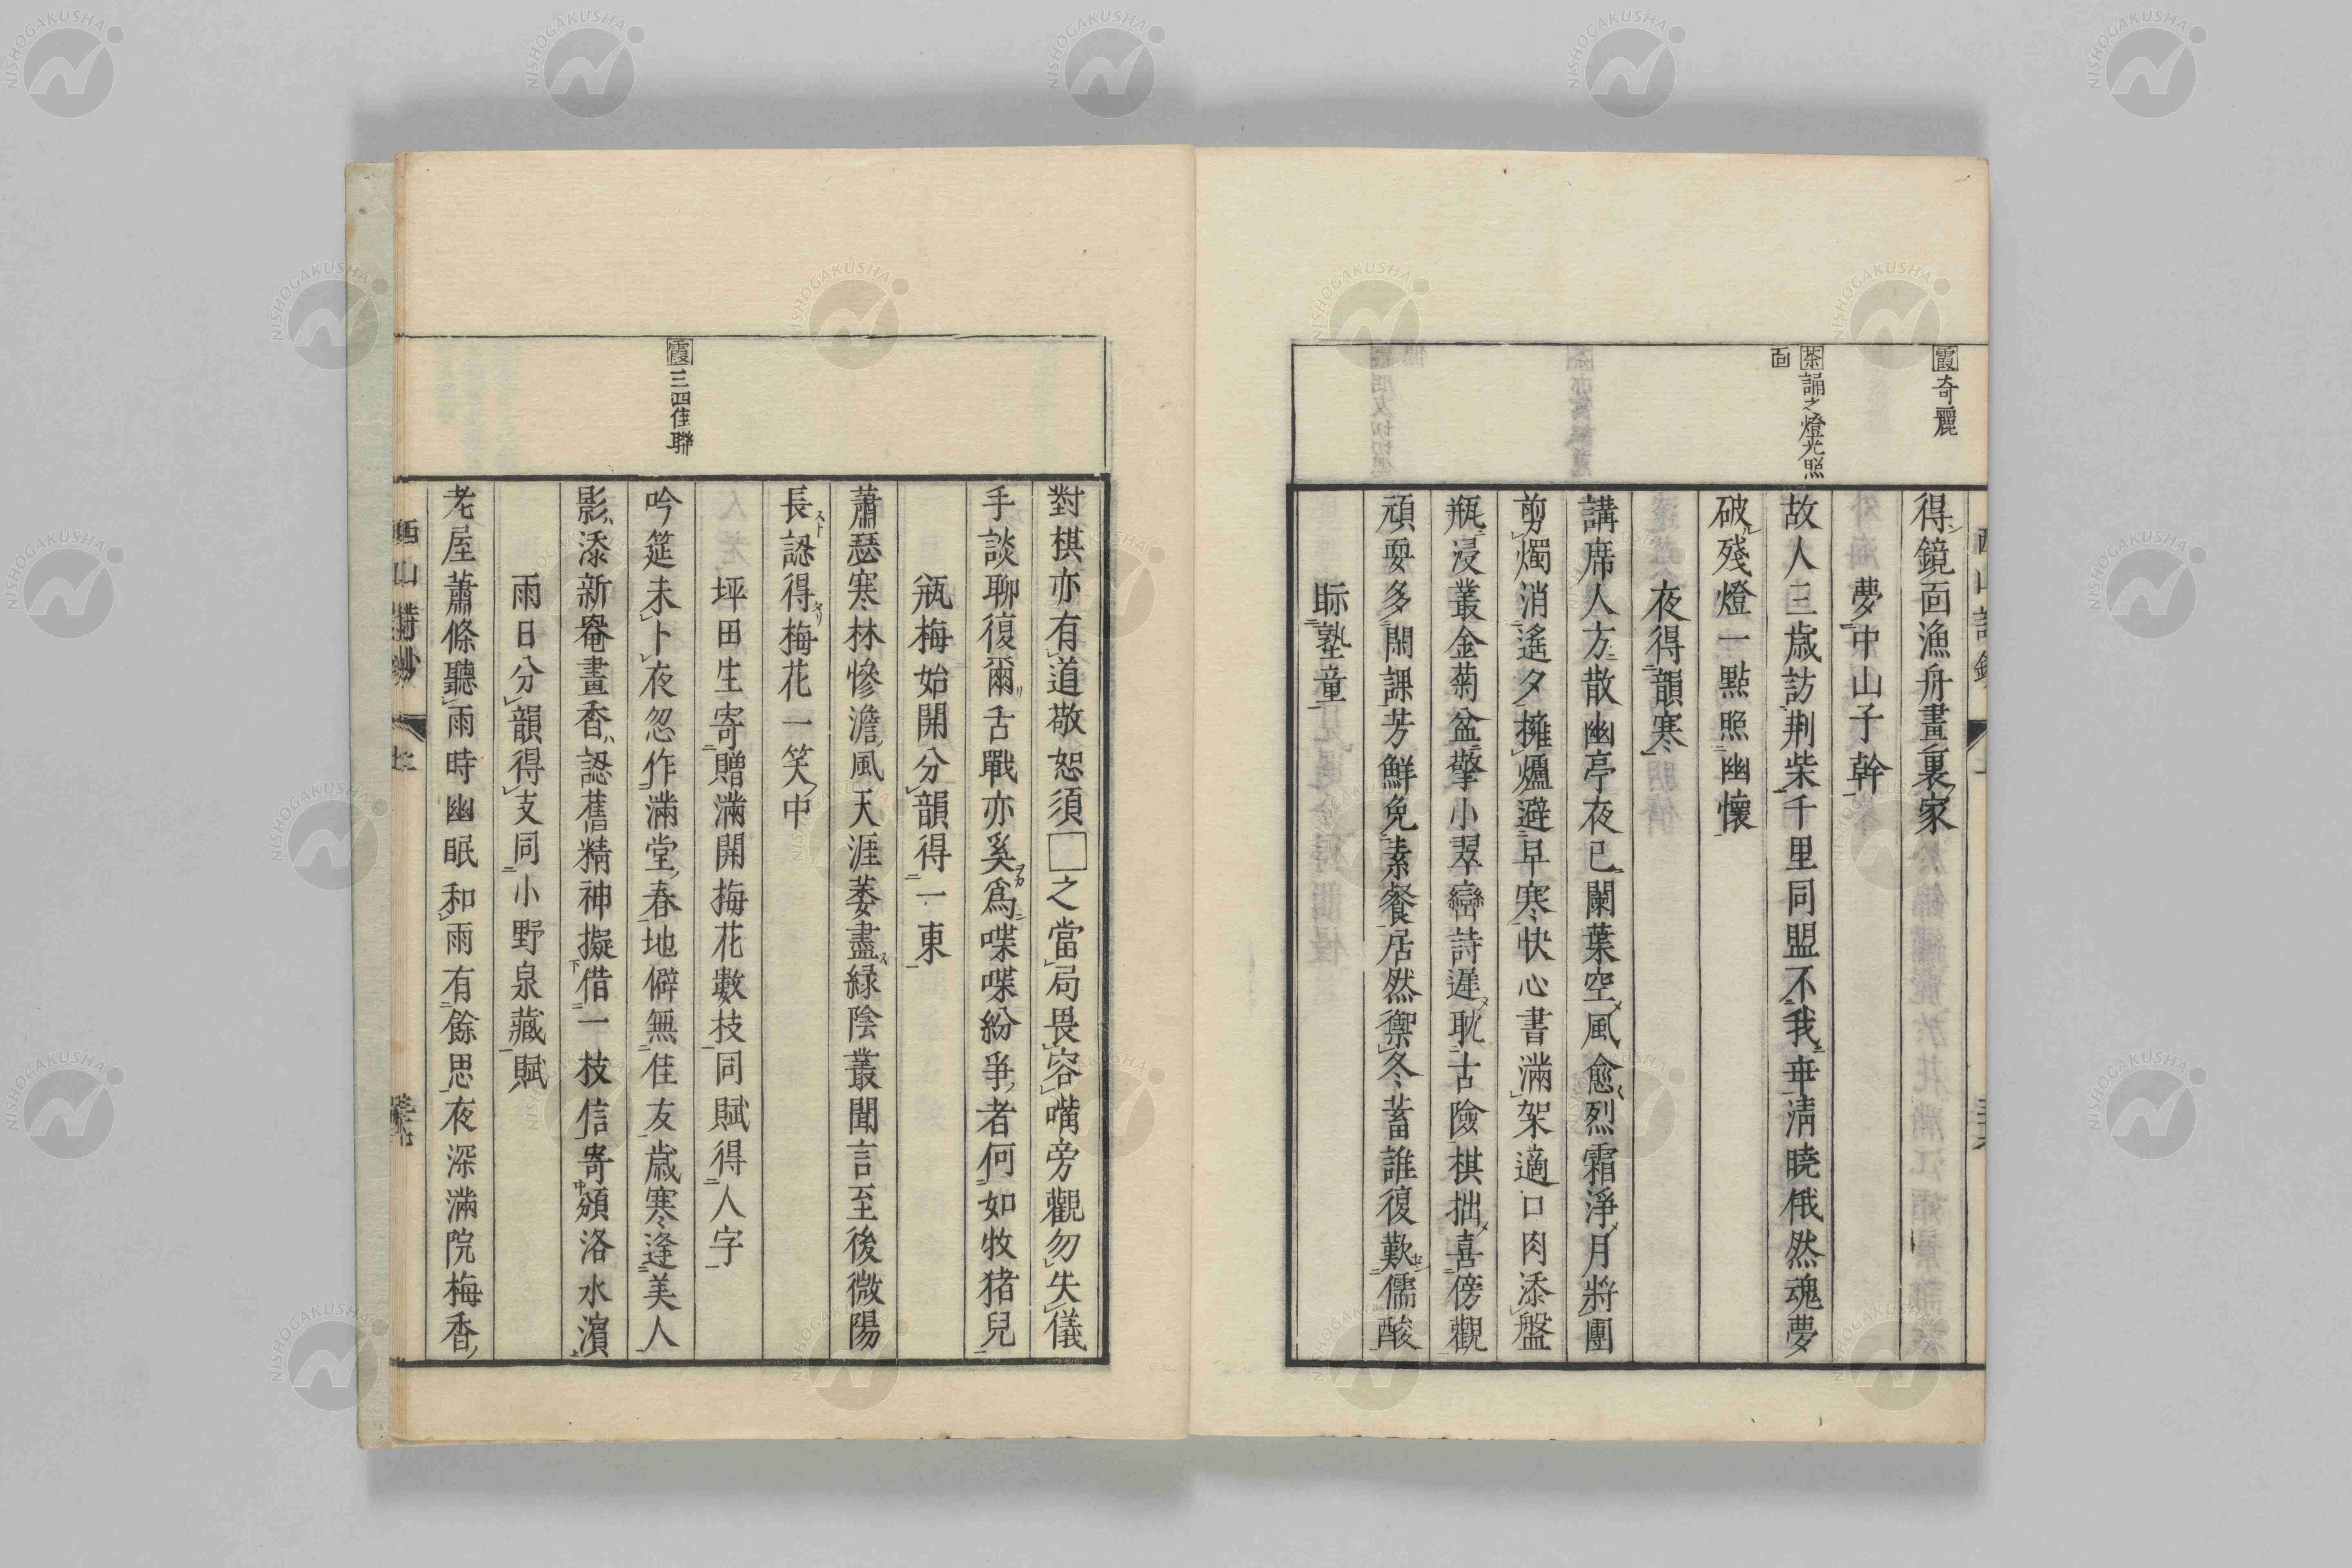 霞奇麗
茶誦之燈光照
面
得鏡面漁舟畫裏家
夢中山子幹
故人三歲訪荆柴千里同盟不我乖淸曉俄然魂夢
破殘燈一點照幽懷
夜得韻寒
講席人方散幽亭夜已闌葉空風愈烈霜淨月將團
剪燭消遙夕擁爐避早寒快心書滿架適口肉添盤
瓶浸叢金菊盆擎小翠巒詩遲耽古險棋拙喜傍觀
頑耍多閑課芳鮮免素餐居然禦冬蓄誰復歎儒酸
眎塾童
霞三四佳聯
對棋亦有道敬恕須□之當局畏容嘴旁觀勿失儀
手談聊復爾舌戰亦奚爲喋喋紛爭者何如牧猪兒
瓶梅始開分韻得一東
蕭瑟寒林慘澹風天涯萎盡緑陰叢聞言至後微陽
長認得梅花一笑中
坪田生寄贈滿開梅花數枝同賦得人字
吟筵未卜夜忽作滿堂春地僻無佳友歲寒逢美人
影添新罨畫香認舊精神擬借一枝信寄頻洛水濱
雨日分韻得支同小野泉藏賦
老屋蕭條聽雨時幽眠和雨有餘思夜深滿院梅香
西山詩鈔